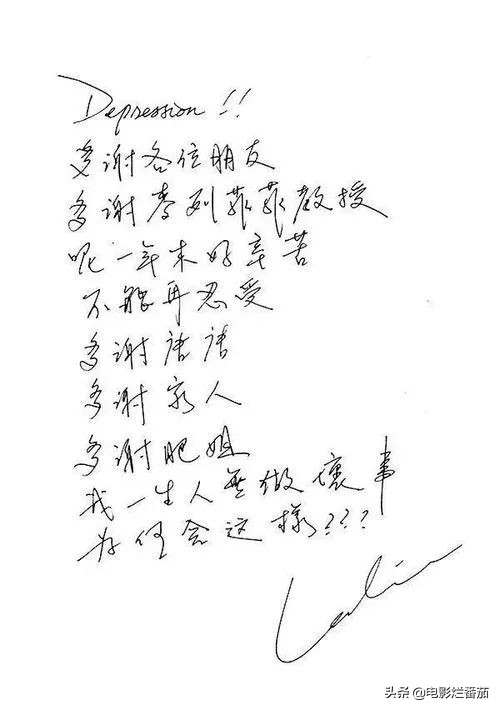 Depression!!
多谢各位朋友
多谢李列菲菲教授
呢一年来好辛苦
不能再忍受
多谢唐唐
多谢家人
多谢肥姐
我一生人無做壞事
为何会这樣???
Leslie
头条 @电影烂番茄